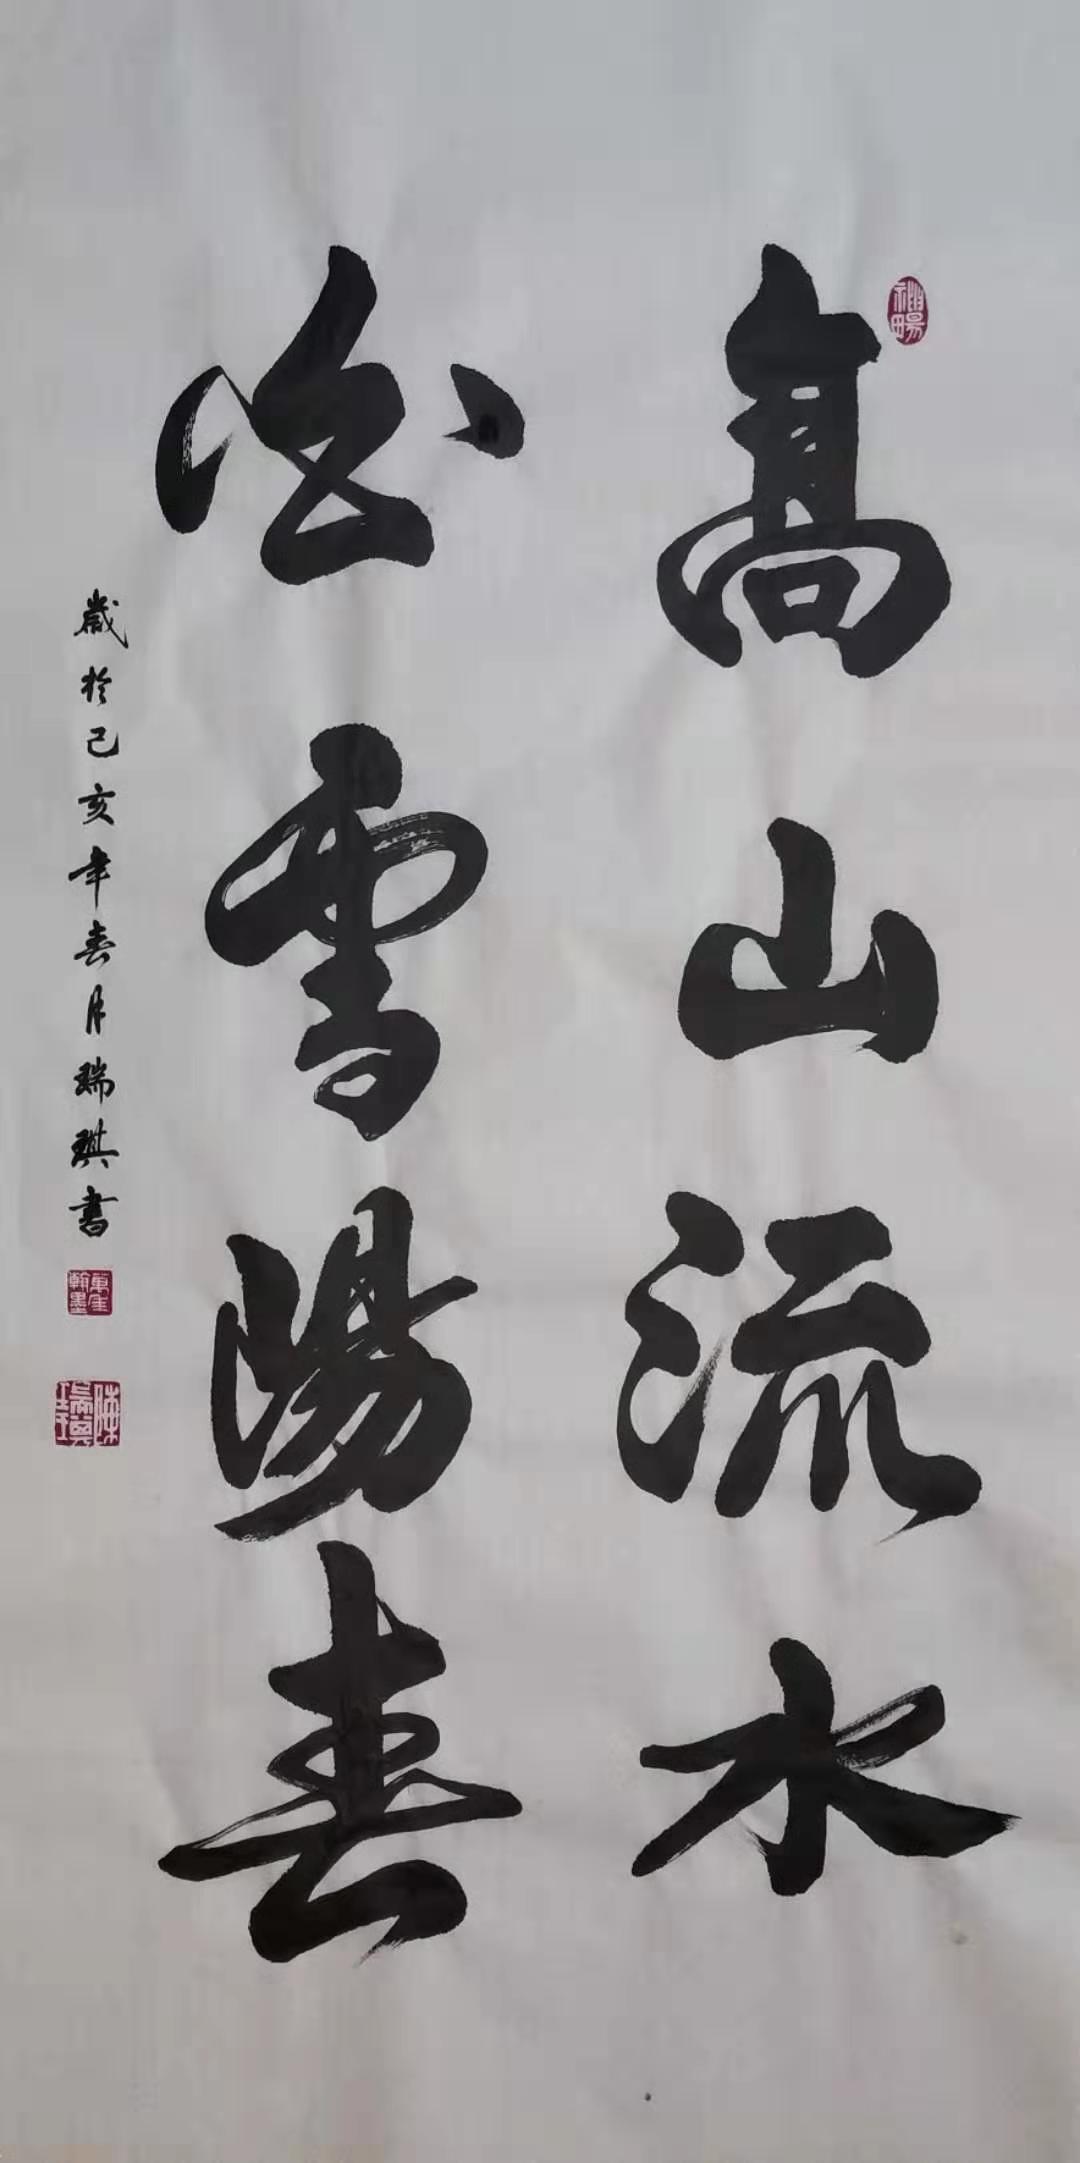 高山流水
白雪陽春
歲於己亥年春月瑞琪書